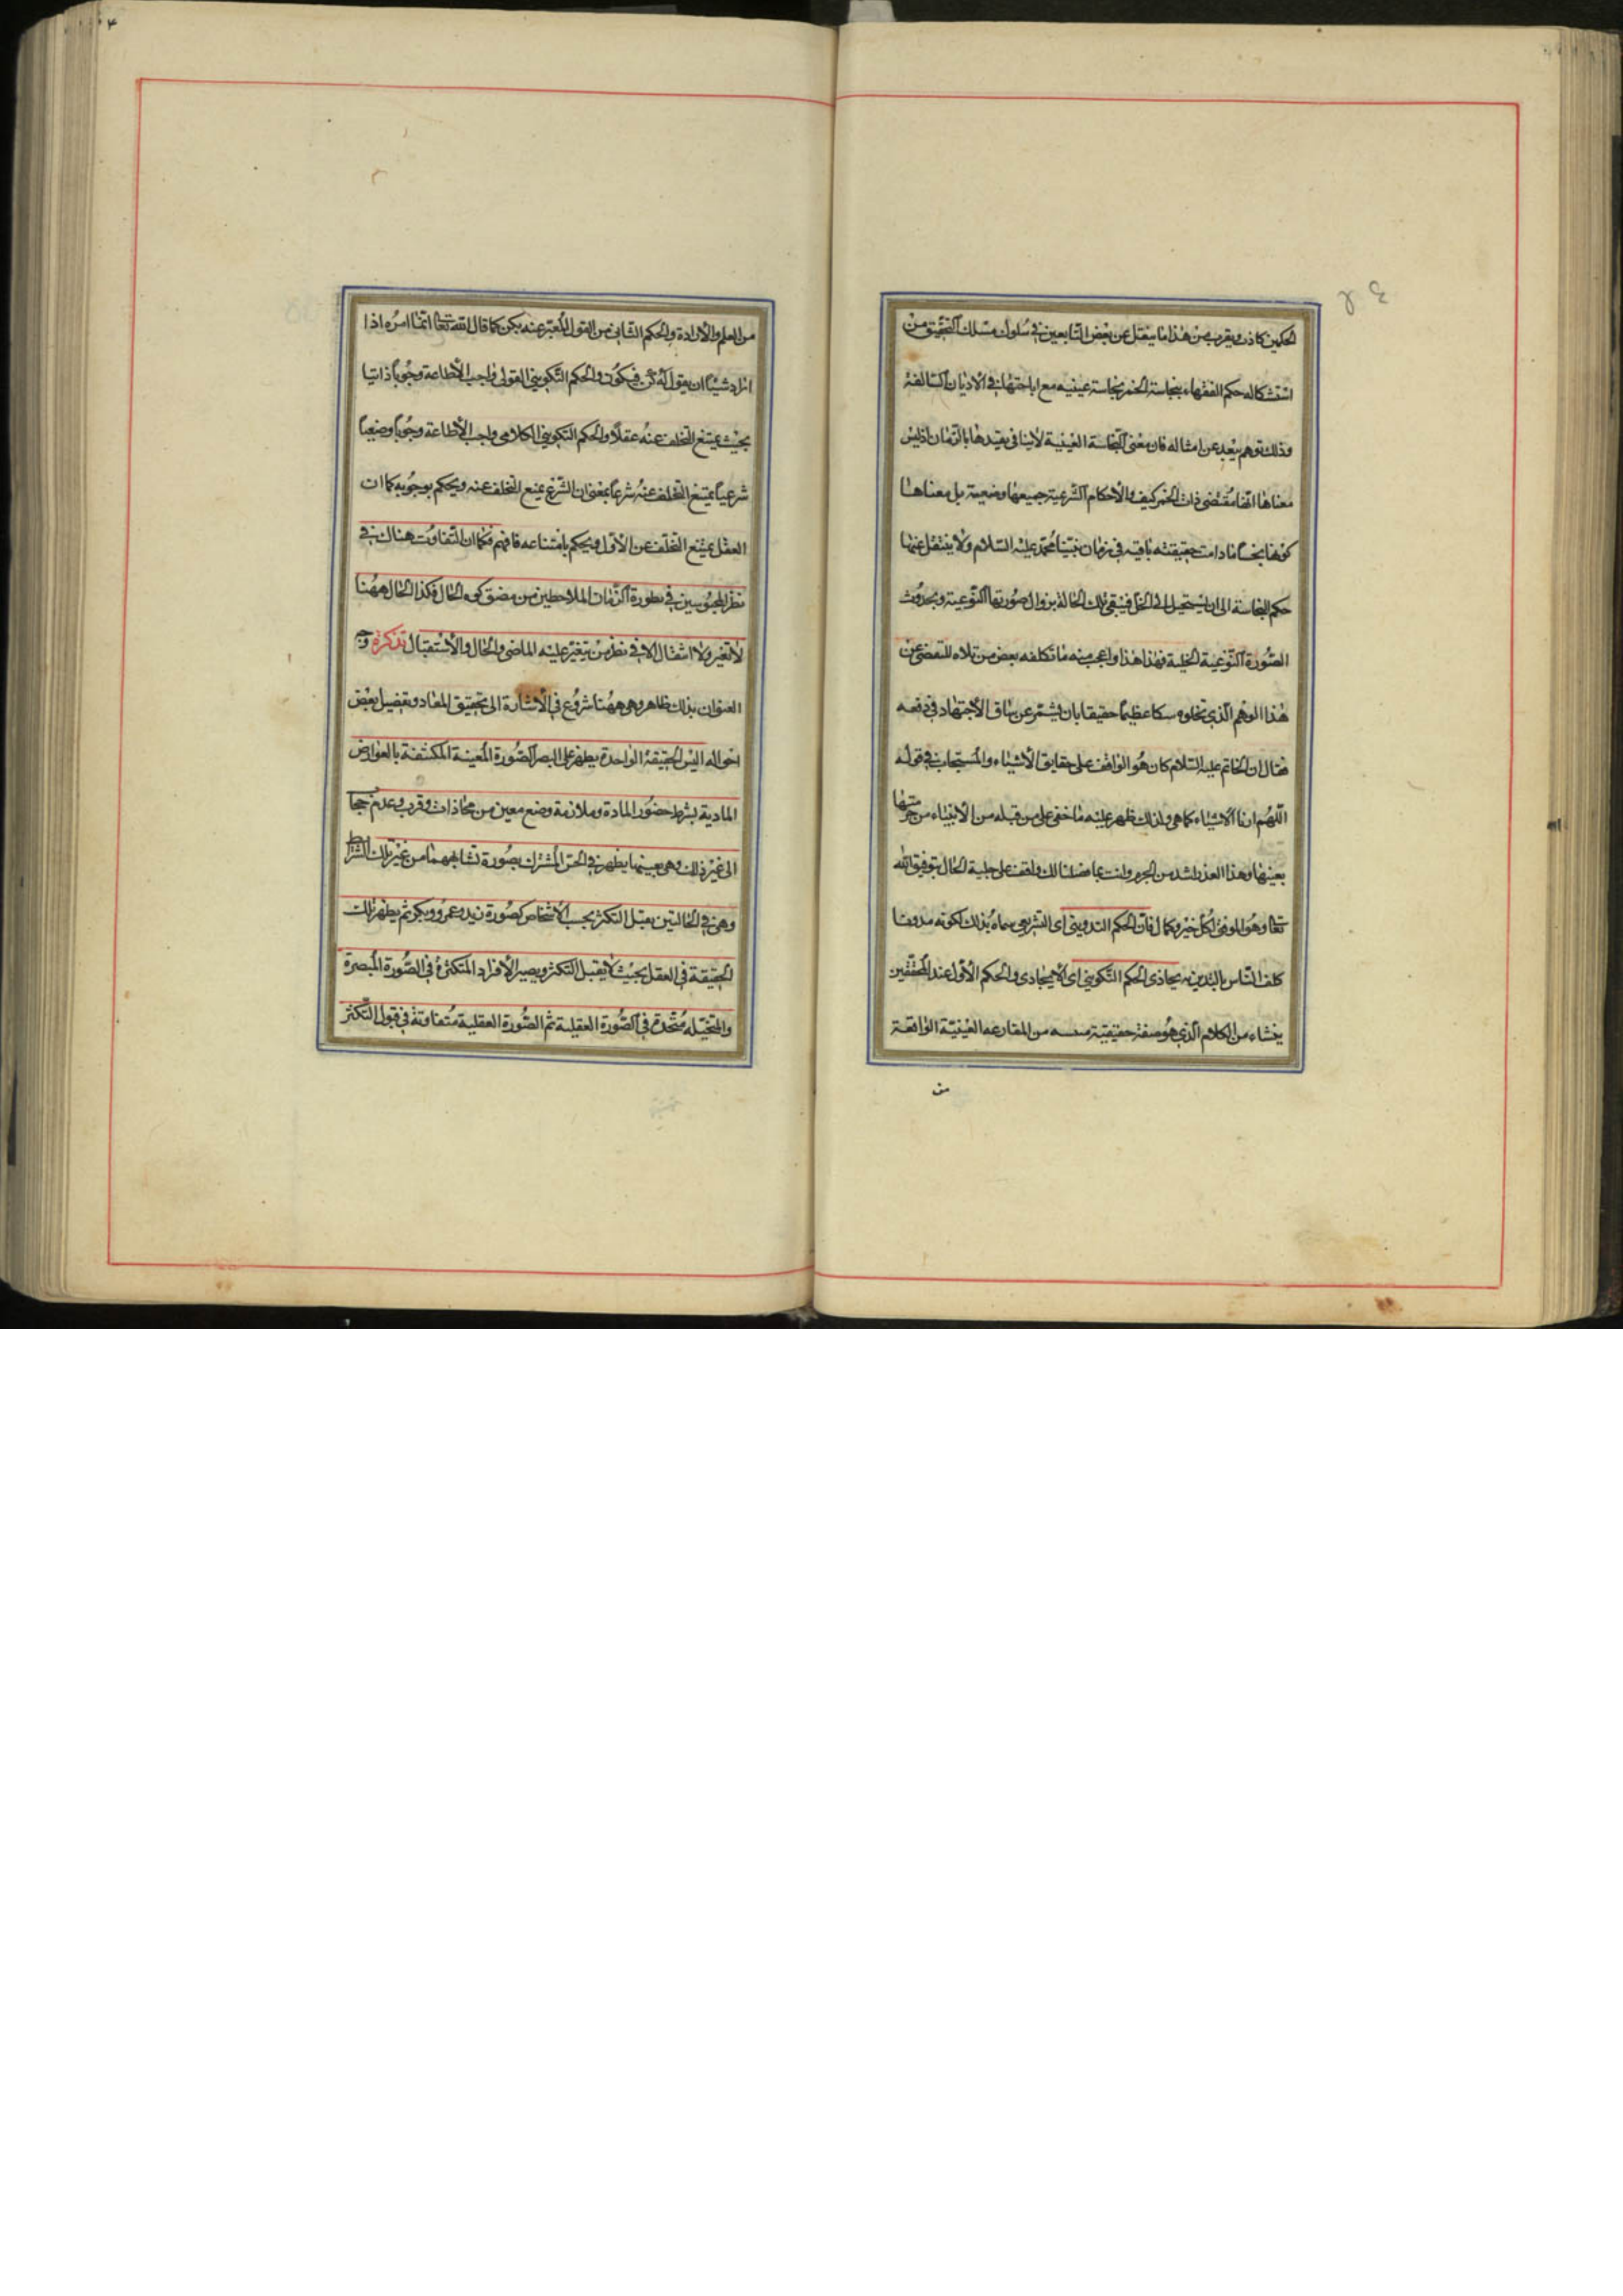 الحكمين كاذب ويقرب من هذا ما ينقل عن بعض التابعين في سلوك مسلك التحقيق من
استشكاله حكم الفقهاء بنجاسة الخمر نجاسة عينيه مع اباحتها في الاديان السالفة
وذلك توهم بعيد عن امثاله فان معنى النجاسة العينية لاينافى تقيدها بالزمان اذ ليس
معناها انها مقتضى ذات الخمر كيف والأحكام الشرعية جميعها وضعية بل معناها
كونها نجسا مادامت حقيقته باقيه في زمان نبينا محمد عليه السلام ولا ينتقل عنها
حكم النجاسة الى ان يستحيل الى الخل فينتفى تلك الحالة بزوال صورتها النوعية وبحدوث
الصورة النوعية الخلية فهذا هذا واعجب منه ما تكلفه بعض من تلاه للتفصى عن
هذا الوهم الذي تخلوه سكا عظيما حقيقا بان يشتمر عن ساق الأجتهاد في دفعه
فقال ان الخاتم عليه السلام كان هو الواقف على حقايق الأشياء والمستجاب في قوله
اللهم ارنا الأشياء كما هي ولذلك ظهر عليه ما خفى على من قبله من الانبياء من حرمتها
بعينها وهذا العذر اشد من الجرم وانت بما فصلنا لك واقف على جلية الحال بتوفيق الله
تعا وهو الموفق لكل خير وكمال فان الحكم التدوينى اى التشريعى سماه بذلك لكونه مدونا
كلف الناس بالتدين به يحاذى الحكم التكوينى اى الأيجادى والحكم الأول عند المحققين
ينشاء من الكلام الذي هو صفة حقيقية من المقارعه الغيبية الواقعة
من
من العلم والأرادة والحكم الثانى من القول المعبر عنه بكن كما قال الله تعا انما امره اذا
اراد شيئا ان يقول له كن فيكون والحكم التكوينى القولى واجب الأطاعة وجوبا ذاتيا
بحيث يمتنع التخلف عنه عقلا والحكم التكوينى الكلامى واجب الأطاعة وجوبا وضعيا
شرعيا يمتنع التخلف عنه شرعا بمعنى ان الشرع يمنع التخلف عنه ويحكم بوجوبه كما ان
العقل يمنع التخلف عن الأول ويحكم بامتناعه فافهم فكما ان التفاوت هناك في
نظر المحبوسين في مطورة الزمان الملاحظين من مضيق كوه الحال فكذا الحال ههنا
لا تغير ولا انتقال الا في نظر من يتغير عليه الماضى والحال والأستقبال تذكرة وجه
العنوان بذلك ظاهر وهى ههنا شروع في الأشارة الى تحقيق المعاد وتفصيل بعض
احواله اليس الحقيقة الواحدة يظهر على البصر الصورة المعينة المكتنفة بالعوارض
المادية بشرط حضور المادة وملازمة وضع معين من محاذات وقرب وعدم حجاب
الى غير ذلك وهى بعينها يظهر في الحس المشترك بصورة تشابهها من غير تلك الشرائط
وهى في الحالتين يقبل التكثر بحسب الأشخاص كصورة زيد وعمرو وبكر ثم يظهر تلك
الحقيقة في العقل بحيث لا يقبل التكثر ويصير الأفراد المتكثرة في الصورة المبصرة
والمتخيله متحدة في الصورة العقلية ثم الصورة العقلية متفاوتة في قبول التكثر